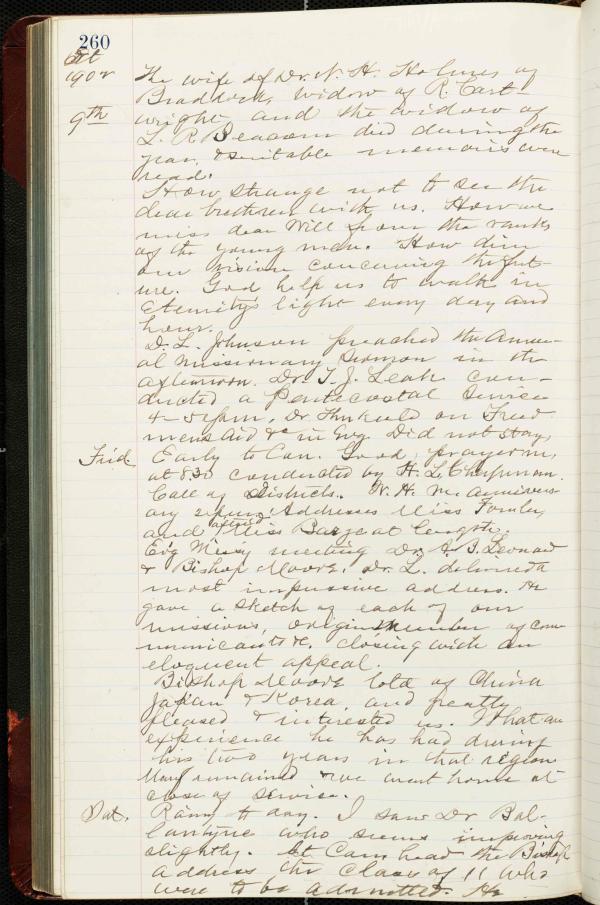 260
Oct
1902
The wife of Dr. N. H. Holmes of
Braddock, widow of R. Cart-
9th
wright, and the widow of
L. R. Beacom died during the
year, & suitable memoirs were
read.
How strange not to see the
dear brethren with us. How we
miss dear Will from the ranks
of the young men. How dim
our vision concerning the fut-
ure. God help us to walk in
Eternity's light every day and
hour.
D. L. Johnson preached the Annu-
al missionary sermon in the
afternoon. Dr. T. J. Leak con-
ducted a Pentecostal Service
4-5 pm, Dr. Thirkield on Freed
mens Aid &c in Evg. Did not stay,
Frid.
Early to Con. Good prayer m,
at 8.30 conducted by H. L. Chapman.
Call of Districts. W. H. M. annivers-
ary Addresses Miss Fowler,
afternd
and Miss Barge at length.
Ev'g Miss'y meeting Dr. A. B. Leonard
& Bishop Moore. Dr. L. delivered a
most impressive address. He
gave a sketch of each of our
missions, origin number of com-
municants &c, closing with an
eloquent appeal.
Bishop Moore told of China
Japan & Korea, and greatly
pleased & interested us. What an
experience he has had during
his two years in that region
Many remained & we went home at
close of service.
Sat.
Rainy day. I saw Dr Bal-
lantyne who seems improving
slightly. At Con. head the Bishop
address the class of 11 who
were to be admitted. He